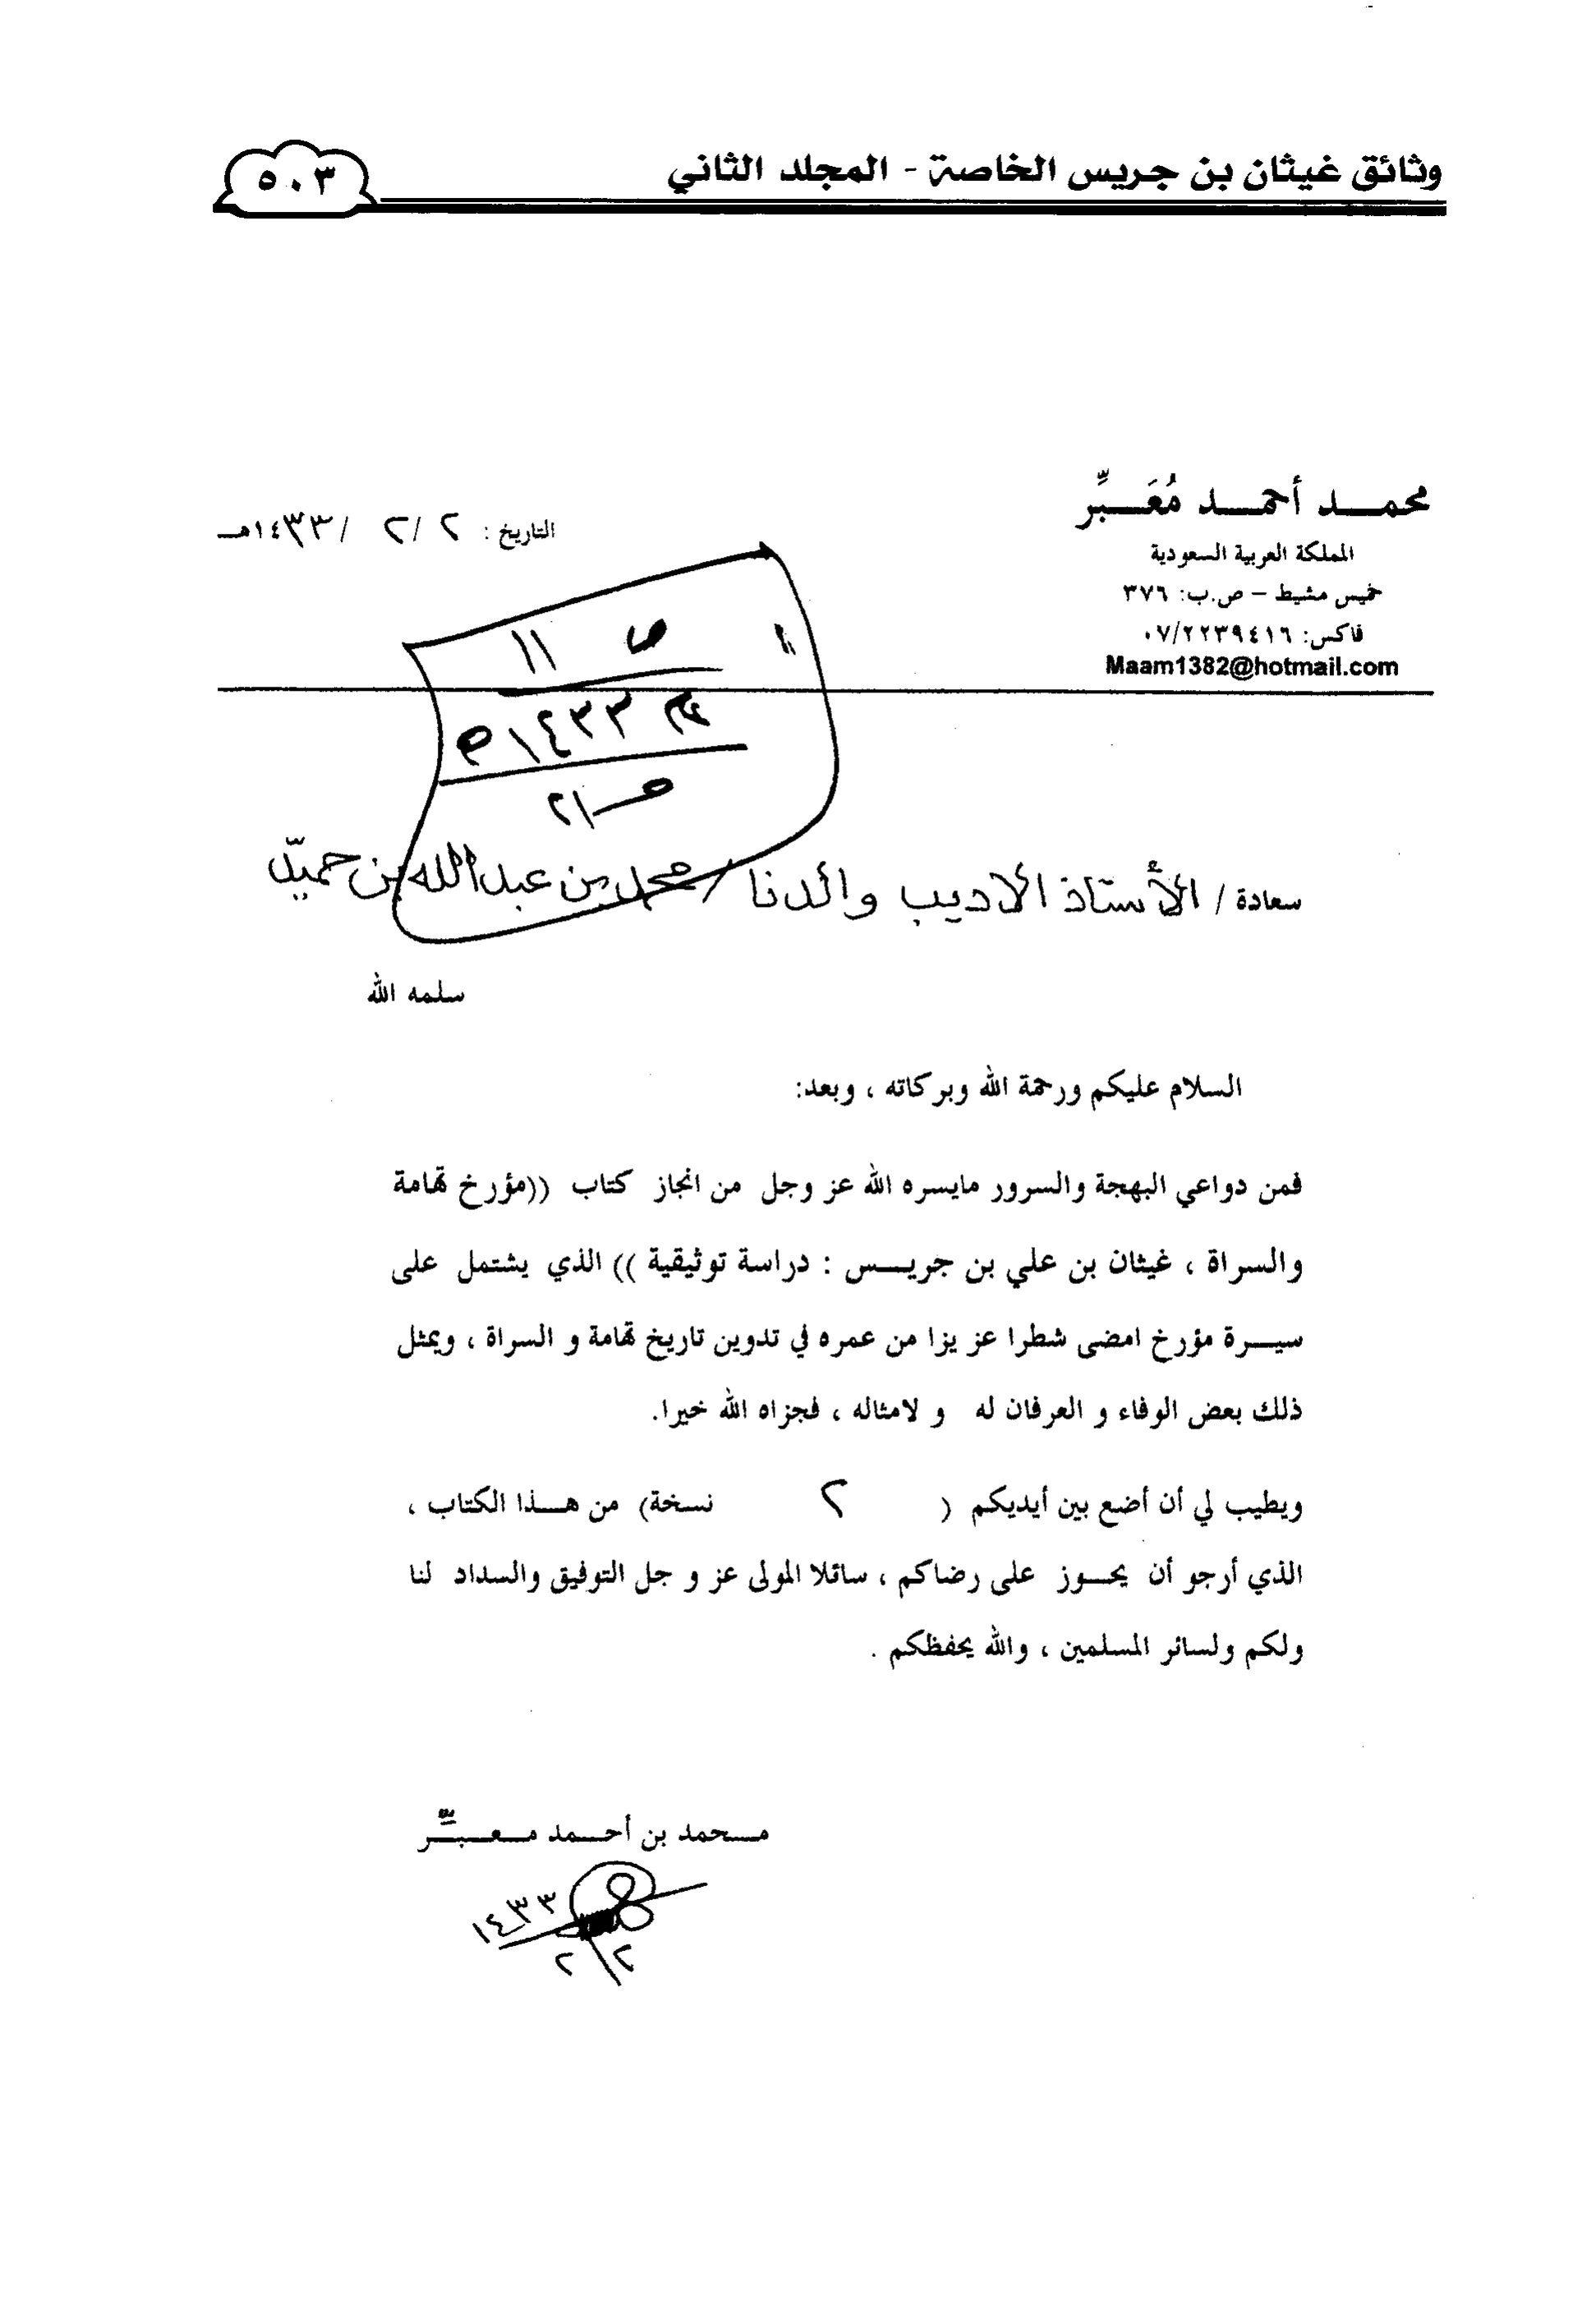 وثائق غيثان بن جريس الخاصة - المجلد الثاني
٥٠٣
محمـد أحمـد مُعَـبِّر
المملكة العربية السعودية
خميس مشيط – ص.ب: ٣٧٦
فاكس: ٠٧/٢٢٣٩٤١٦
Maam1382@hotmail.com
التاريخ : ٢ / ٢ / ١٤٣٣هـ
ص ١١
١٤٣٣
سعادة / الأستاذ الاديب والدنا / محمد بن عبدالله بن حميّد
سلمه الله
السلام عليكم ورحمة الله وبركاته ، وبعد:
فمن دواعي البهجة والسرور مايسره الله عز وجل من انجاز كتاب ((مؤرخ تهامة
والسراة ، غيثان بن علي بن جريـس : دراسة توثيقية )) الذي يشتمل على
سيـرة مؤرخ امضى شطرا عز يزا من عمره في تدوين تاريخ تهامة و السراة ، ويمثل
ذلك بعض الوفاء و العرفان له و لامثاله ، فجزاه الله خيرا.
ويطيب لي أن أضع بين أيديكم ( ٢ نسخة) من هـذا الكتاب ،
الذي أرجو أن يحـوز على رضاكم ، سائلا المولى عز و جل التوفيق والسداد لنا
ولكم ولسائر المسلمين ، والله يحفظكم .
مـحمد بن أحـمد مـعـبـّر
١٤٣٣
٢/٢